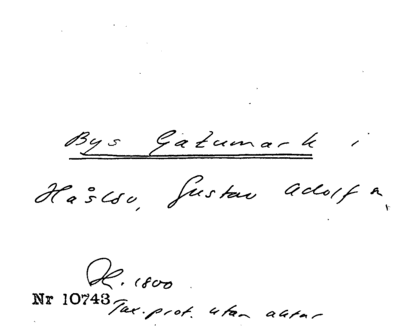 Bys Gatumark i
Håslöv, Gustav Adolf m
1800
Nr 10743 Tax. prot. utan aktur